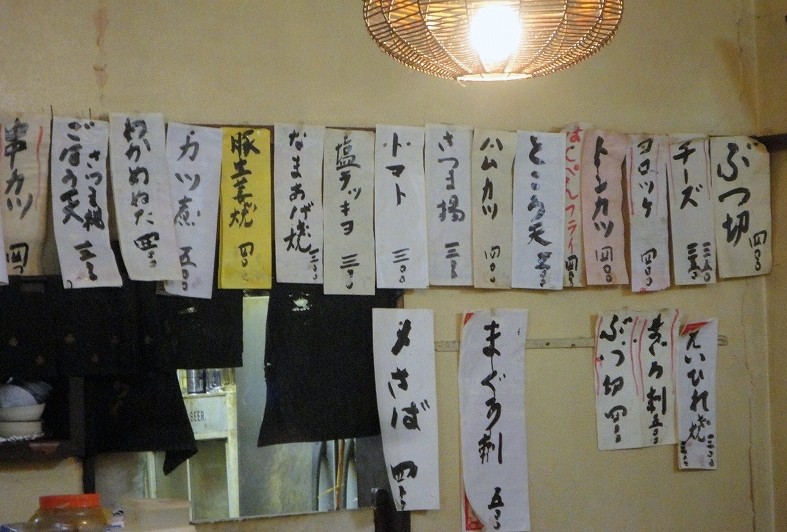 ぶつ切 四〇〇
チーズ 三五〇
コロッケ 四〇〇
トンカツ 四〇〇
はこべんフライ 四〇〇
ところ天
ハムカツ 四〇〇
さつま揚 三〇〇
トマト 三〇〇
塩ラッキョ 三〇〇
なまあげ焼 三〇〇
豚生姜焼 四〇〇
カツ煮 五〇〇
わかめぬた 四〇〇
さつま揚
ごぼう天 三〇〇
串カツ 四〇〇
えいひれ焼
まぐろ刺 五〇〇
ぶつ切 四〇〇
まぐろ刺 五〇〇
〆さば 四〇〇
BEER